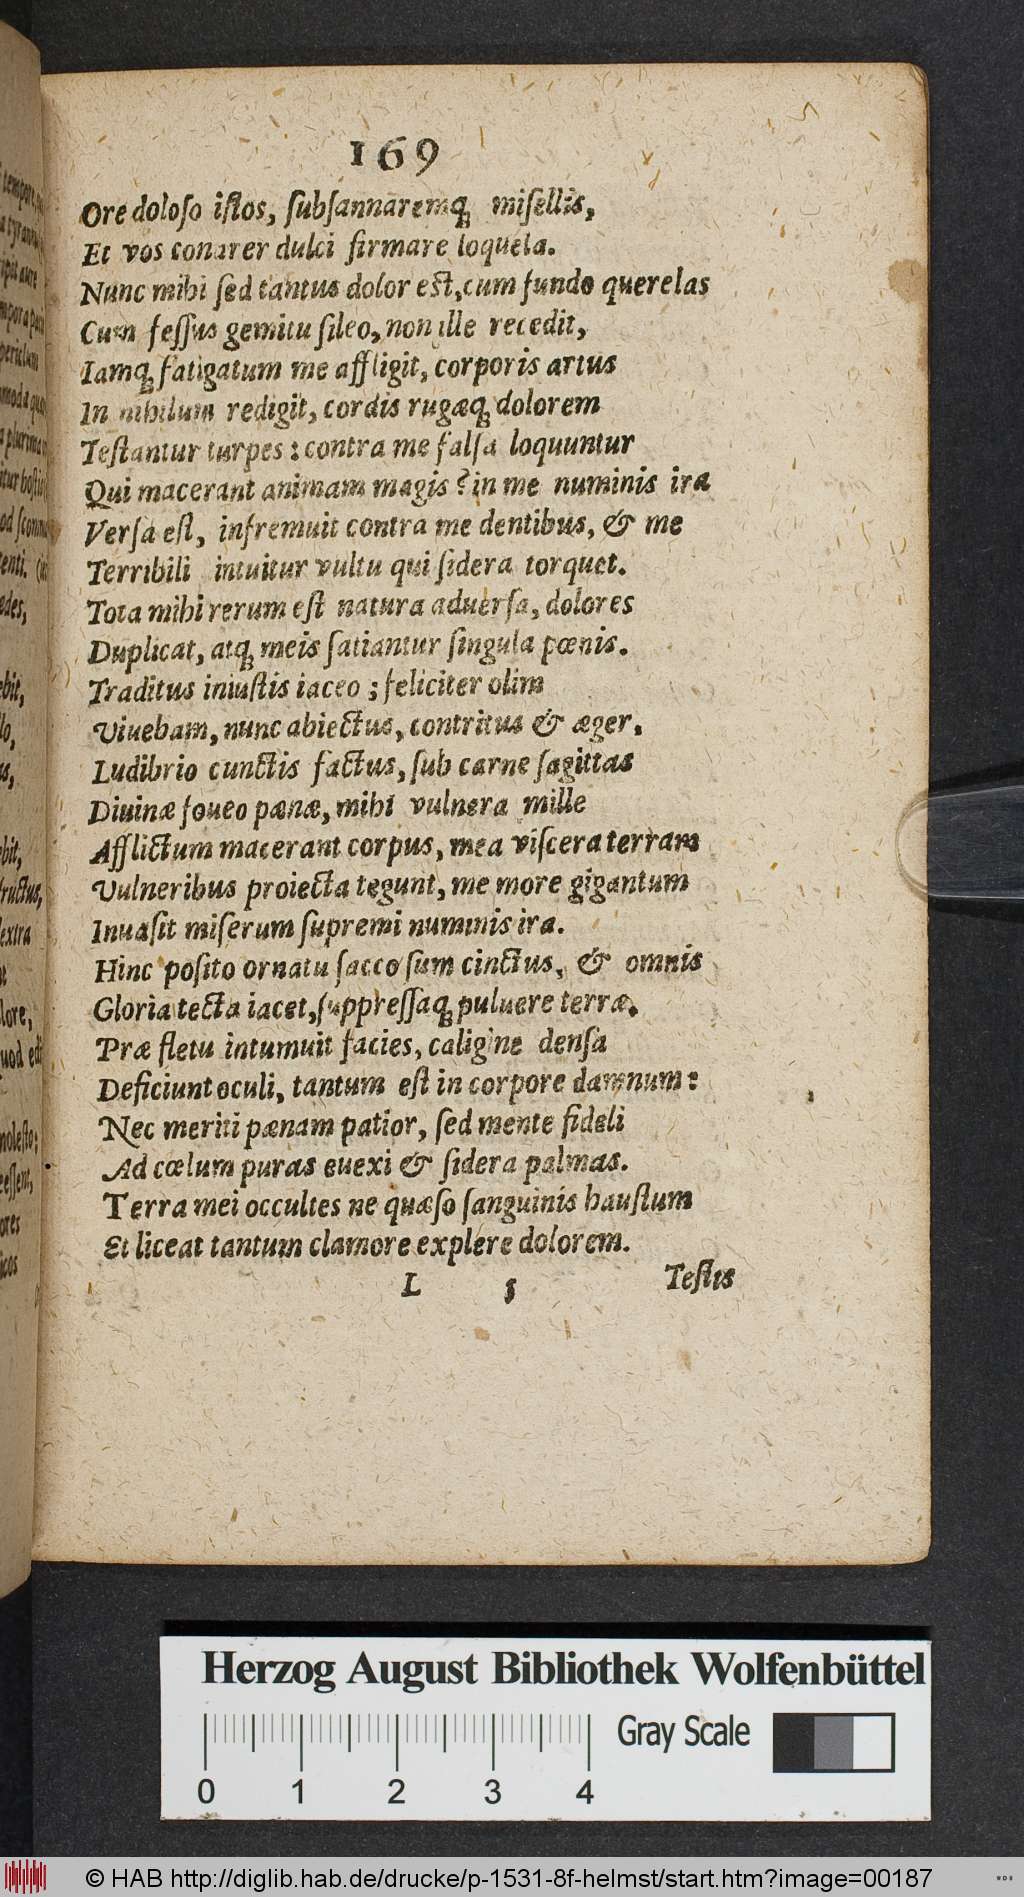 169
Ore doloso istos, subsannaremq́; misellis,
Et vos conarer dulci firmare loquela.
Nunc mihi sed tantus dolor est, cum fundo querelas
Cum fessus gemitu sileo, non ille recedit,
Iamq́; fatigatum me affligit, corporis artus
In nihilum redigit, cordis rugæq́; dolorem
Testantur turpes: contra me falsa loquuntur
Qui macerant animam magis? in me numinis ira
Versa est, infremuit contra me dentibus, & me
Terribili intuitur vultu qui sidera torquet.
Tota mihi rerum est natura aduersa, dolores
Duplicat, atq́; meis satiantur singula pœnis.
Traditus iniustis iaceo; feliciter olim
Viuebam, nunc abiectus, contritus & æger,
Ludibrio cunctis factus, sub carne sagittas
Diuinæ foueo pænæ, mihi vulnera mille
Afflictum macerant corpus, mea viscera terram
Vulneribus proiecta tegunt, me more gigantum
Inuasit miserum supremi numinis ira.
Hinc posito ornatu sacco sum cinctus, & omnis
Gloria tecta iacet, suppressaq́; puluere terræ.
Præ fletu intumuit facies, caligine densa
Deficiunt oculi, tantum est in corpore damnum:
Nec meriti pænam patior, sed mente fideli
Ad cœlum puras euexi & sidera palmas.
Terra mei occultes ne quæso sanguinis haustum
Et liceat tantum clamore explere dolorem.
L 5 Testis
Herzog August Bibliothek Wolfenbüttel
Gray Scale
0 1 2 3 4
© HAB http://diglib.hab.de/drucke/p-1531-8f-helmst/start.htm?image=00187